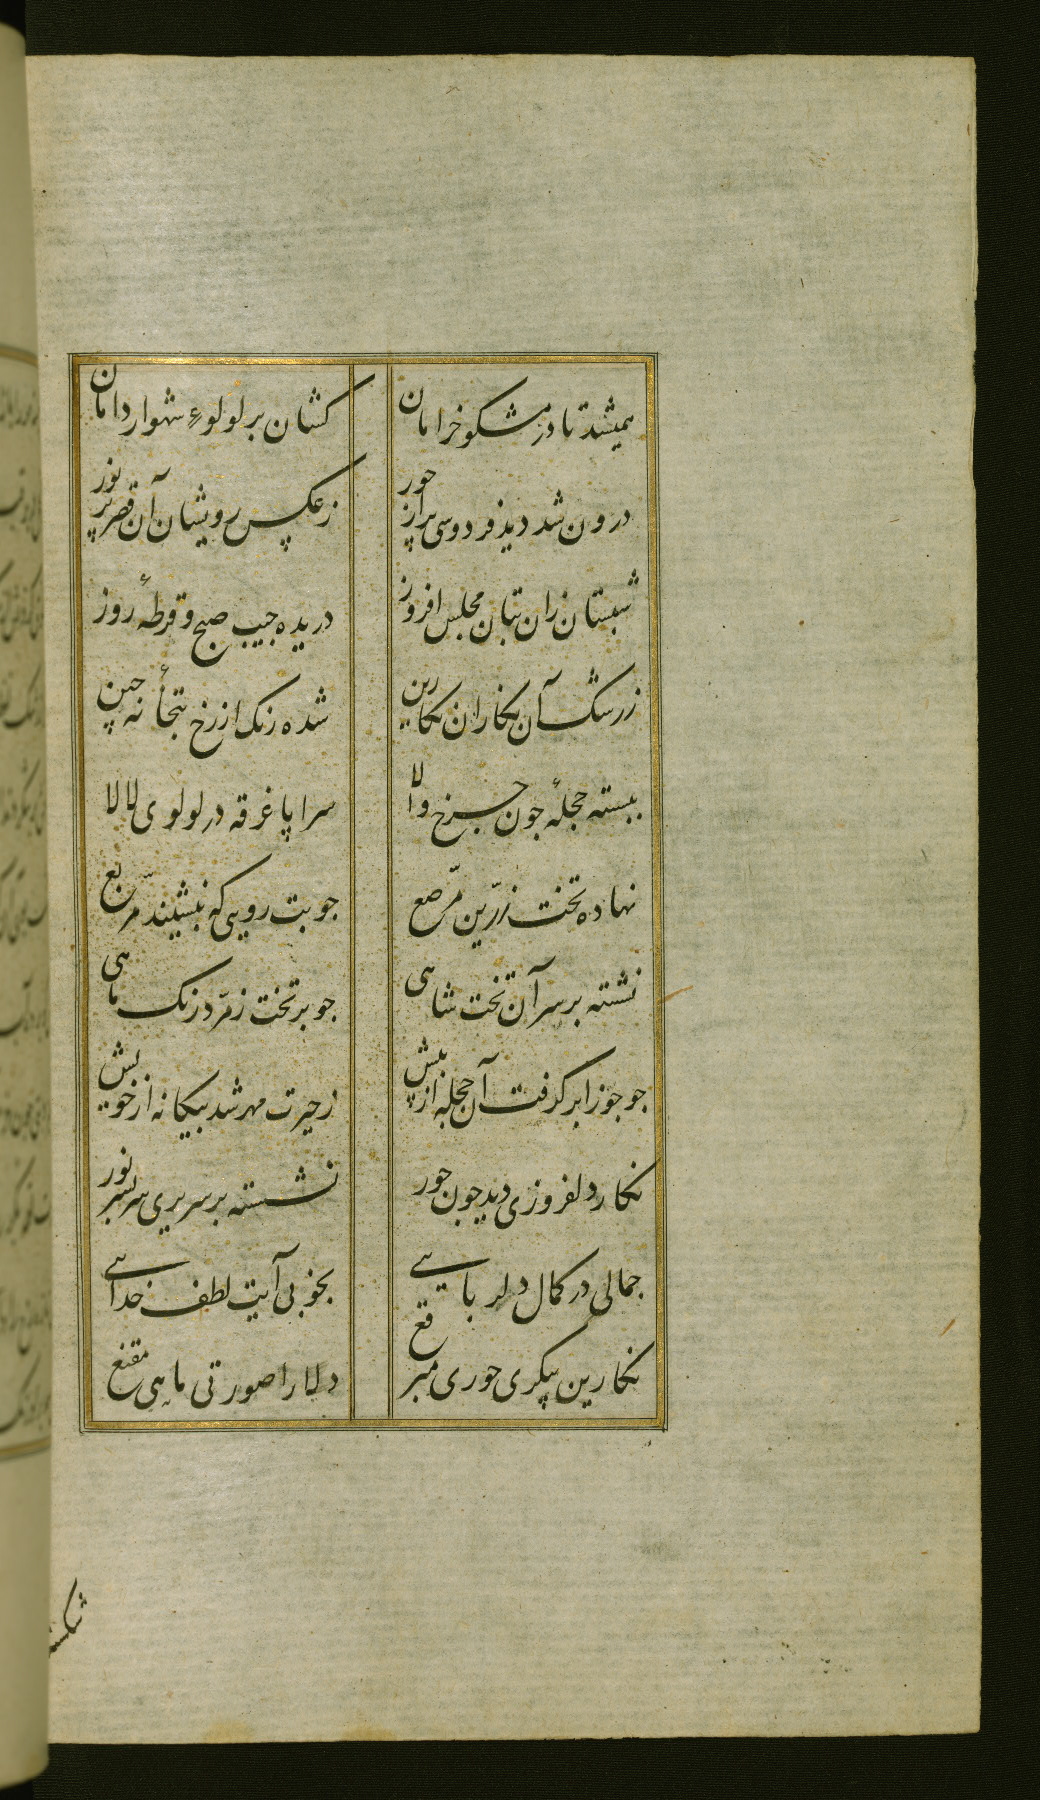 همیشد تا در مشکو خرامان
کشان بر لولوء شهوار دامان
درون شد دید فردوسی پر از حور
ز عکس رویشان آن قصر پر نور
شبستان زان بتان مجلس افروز
دریده جیب صبح و قرطهٔ روز
ز رشک آن نکاران نکارین
شده رنک از رخ بتخانهٔ چین
ببسته حجلهٔ جون جرخ والا
سراپا غرقه در لولوی لالا
نهاده تخت زرّین مرّصع
جو بت رویی که بنشیند مرّبع
نشسته بر سر آن تخت شاهی
جو بر تخت زمرّد رنک ماهی
جو جوزا بر کرفت آن حجله از پیش
ز حیرت مهر شد بیکانه از خویش
نکار دلفروزی دید جون حور
نشسته بر سریری سر بسر نور
جمالی در کمال دلربایی
بخوبی آیت لطف خدایی
نکارین پیکری حوری مبرقع
دلارا صورتی ماهی مقنع